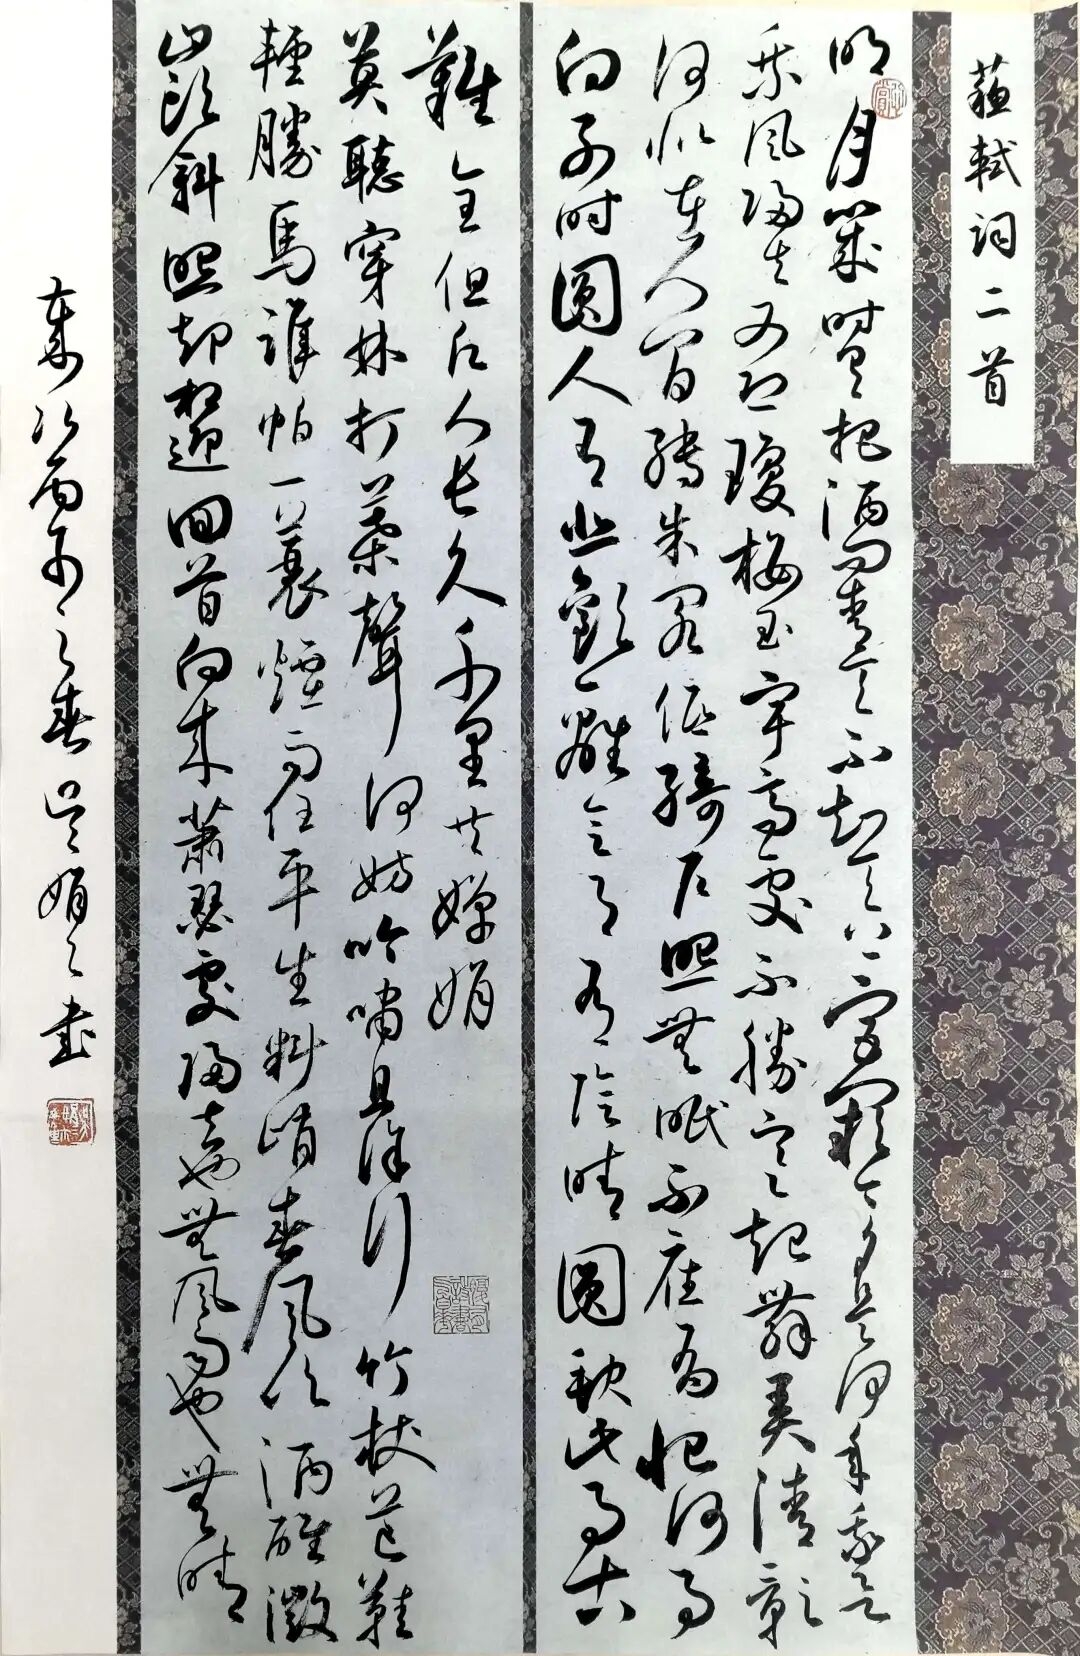 蘇軾詞二首
明月幾時有把酒問青天不知天上宮闕今夕是何年我欲
乘風歸去又恐瓊樓玉宇高處不勝寒起舞弄清影
何似在人間轉朱閣低綺戶照無眠不應有恨何事
向別時圓人有悲歡離合月有陰晴圓缺此事古
難全但願人長久千里共嬋娟
莫聽穿林打葉聲何妨吟嘯且徐行竹杖芒鞋
輕勝馬誰怕一蓑煙雨任平生料峭春風吹酒醒微
山頭斜照卻相迎回首向來蕭瑟處歸去也無風雨也無晴
歲次丙午之春吳娟書